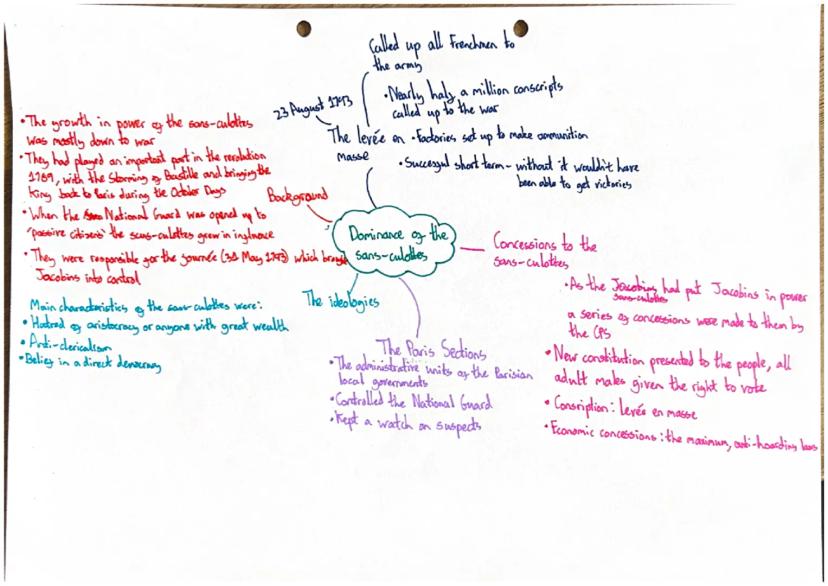 Called up all Frenchmen to
the army
• Nearly half a million conscripts
called up to the war
23 August 1793
The levée en
masse
• Factories set up to make ammunition
• Successful short term - without it wouldn't have
been able to get victories
• The growth in power of the sans-culottes
was mostly down to war
• They had played an important part in the revolution
1789, with the Storming of Bastille and bringing the
King back to Paris during the October Days
• When the National Guard was opened up to
'passive citizens' the sans-culottes grew in influence
• They were responsible for the journée (31 May 1793) which brought
Jacobins into control
Background
Dominance of the
sans-culottes
Concessions to the
sans-culottes
• As the Jacobins had put Jacobins in power
sans-culottes
a series of concessions were made to them by
the CPS
• New constitution presented to the people, all
adult males given the right to vote
• Consription: levée en masse
• Economic concessions: the maximum, anti-hoarding laws
The ideologies
Main characteristics of the sans-culottes were:
• Hatred of aristocracy or anyone with great wealth
• Anti-clericalism
• Belief in a direct democracy
The Paris Sections
• The administrative units of the Parisian
local governments
• Controlled the National Guard
• Kept a watch on suspects